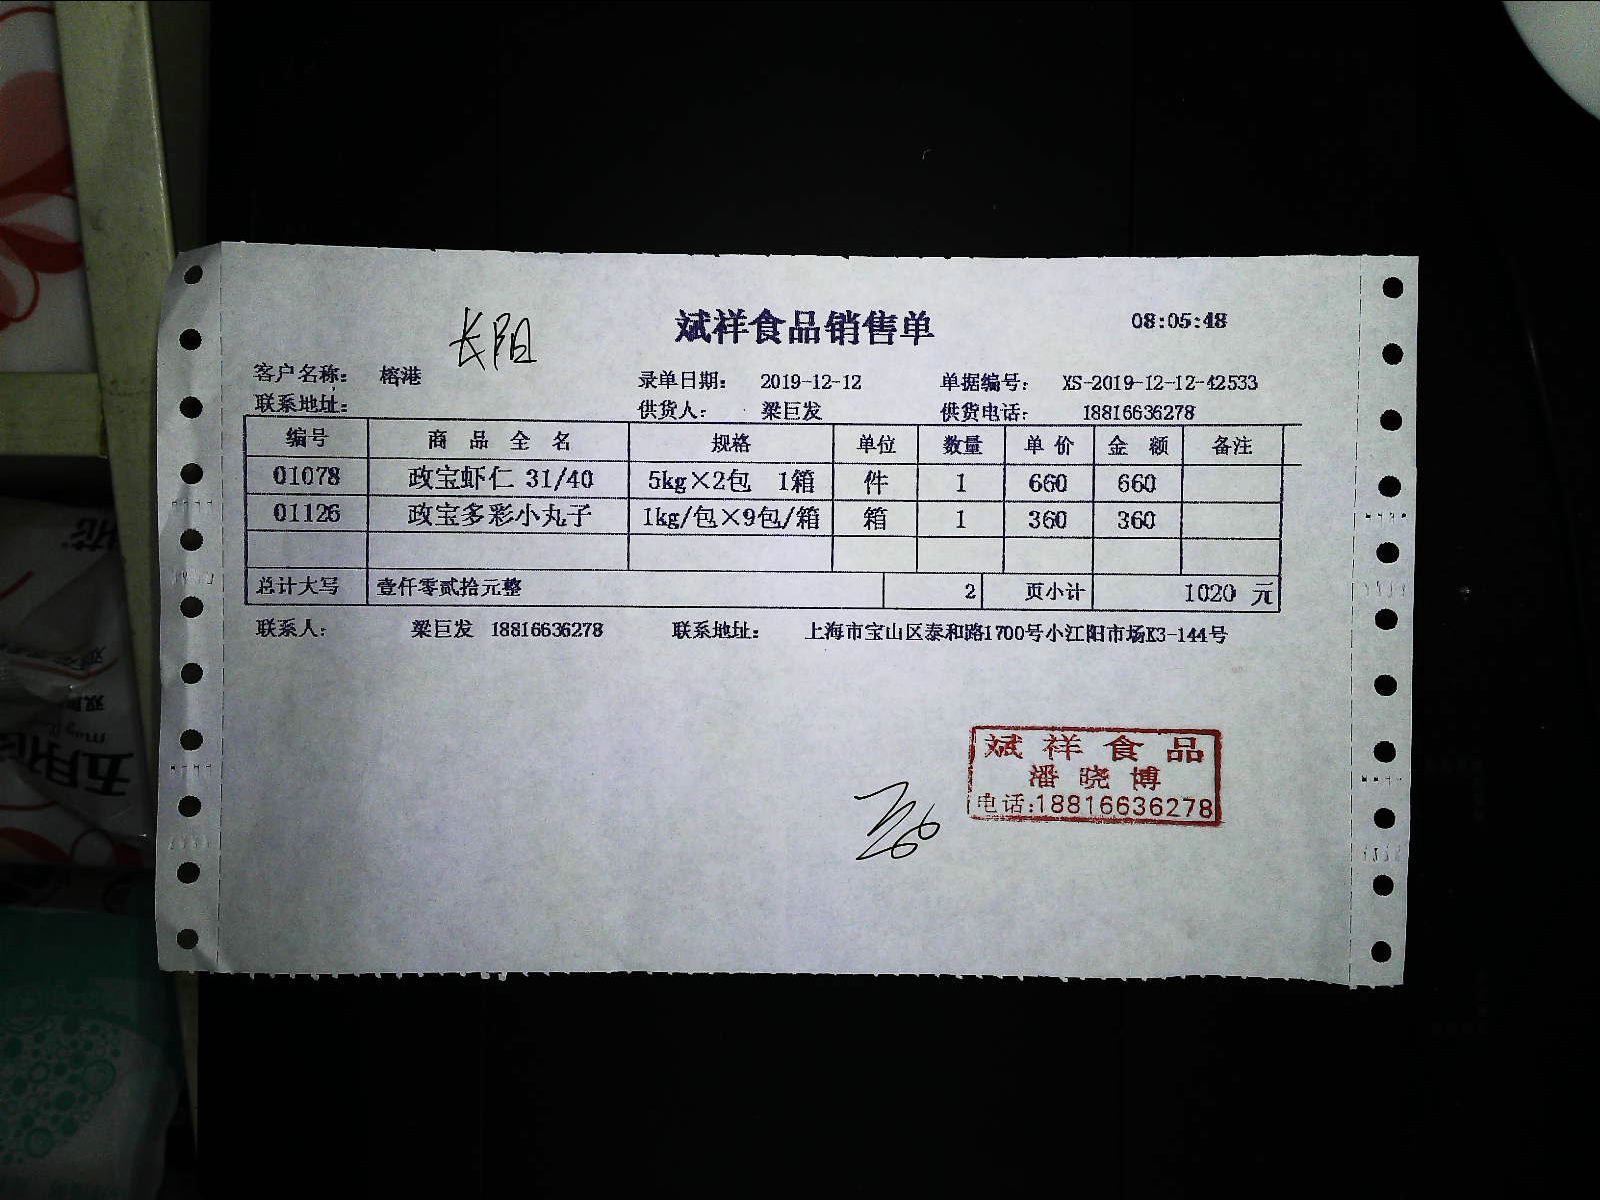 长阳
斌祥食品销售单 08:05:48
客户名称： 榕港 录单日期： 2019-12-12 单据编号： XS-2019-12-12-42533
联系地址： 供货人： 梁巨发 供货电话： 18816636278
编号 商品全名 规格 单位 数量 单价 金额 备注
01078 政宝虾仁 31/40 5kg×2包 1箱 件 1 660 660
01126 政宝多彩小丸子 1kg/包×9包/箱 箱 1 360 360
总计大写 壹仟零贰拾元整 2 页小计 1020 元
联系人： 梁巨发 18816636278 联系地址： 上海市宝山区泰和路1700号小江阳市场K3-144号
斌祥食品
潘晓博
电话:18816636278
五月花